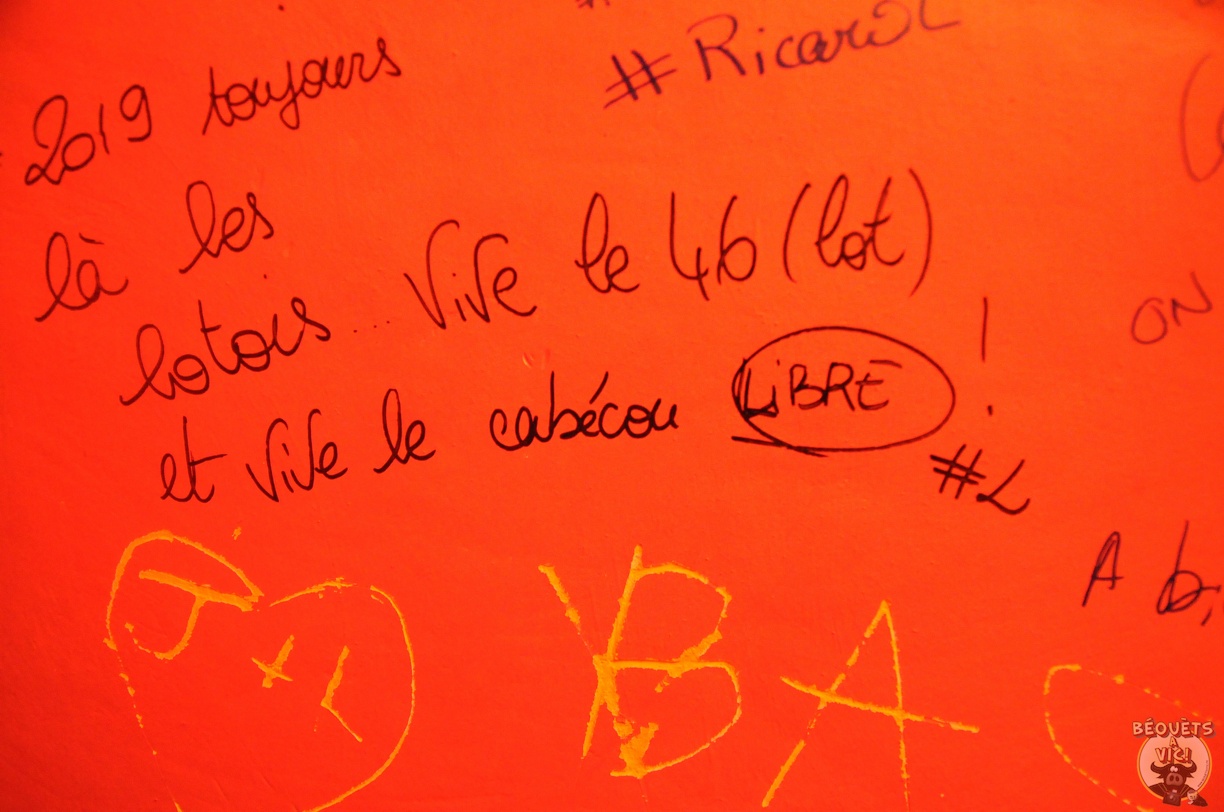 #Ricard
2019 toujours
là les
lotois... Vive le 46 (lot)
et vive le cabécou LiBRE !
#L
ON
A b
J + L
B A
BÉOUÈTS
A
VICI